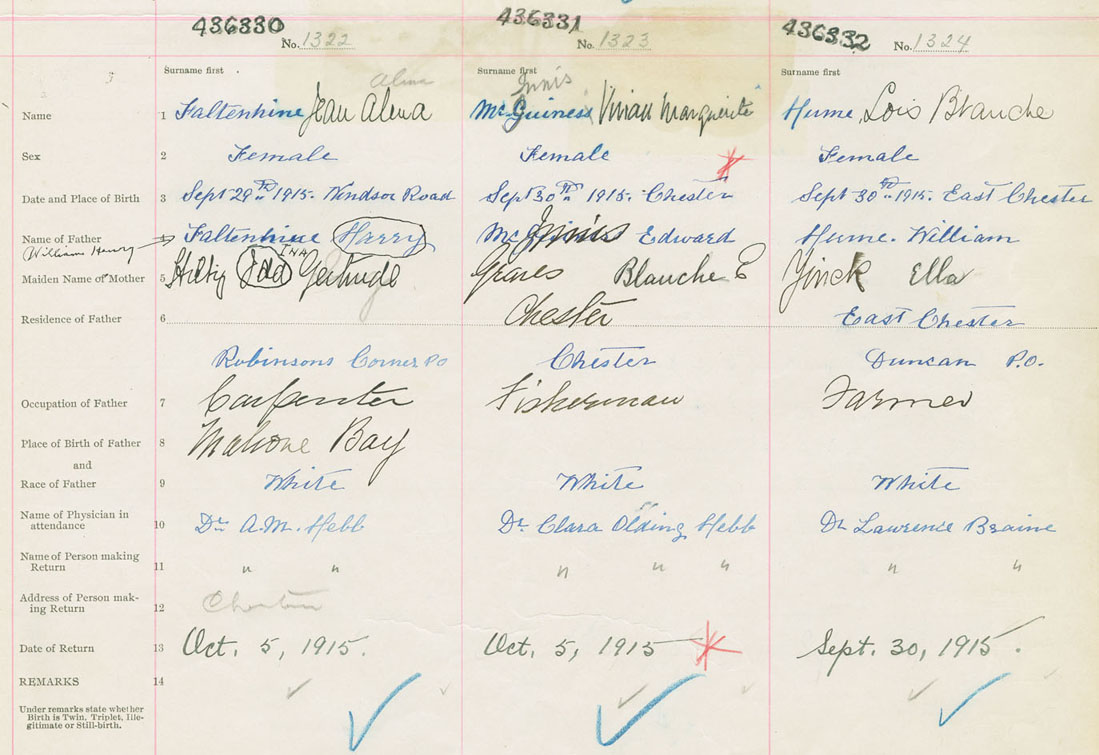 436330 436331 436332
No. 1322 No. 1323 No. 1324
Surname first Surname first Surname first
Alma Innis
Name 1 Faltenhine Jean Alma McGuiness Vivian Marguerite Hume, Lois Blanche
Sex 2 Female Female Female
Date and Place of Birth 3 Sept 29th 1915. Windsor Road Sept 30th 1915. Chester Sept 30th 1915. East Chester
Name of Father Faltenhine Harry Mc Innis Edward Hume. William
William Henry
INA
Maiden Name of Mother 5 Ida Gertrude Graves Blanche E Ella
Residence of Father 6 Chester East Chester
Robinsons Corner PO Chester Duncan P.O.
Occupation of Father 7 Carpenter Fisherman Farmer
Place of Birth of Father 8 Mahone Bay
and
Race of Father 9 White White White
Name of Physician in attendance 10 Dr A.M. Hebb Dr. Clara Olding Hebb Dr Lawrence Braine
Name of Person making Return 11 " " " " " " "
Address of Person making Return 12 Chester
Date of Return 13 Oct. 5, 1915. Oct. 5, 1915 Sept. 30, 1915.
REMARKS 14
Under remarks state whether
Birth is Twin, Triplet, Ille-
gitimate or Still-birth.